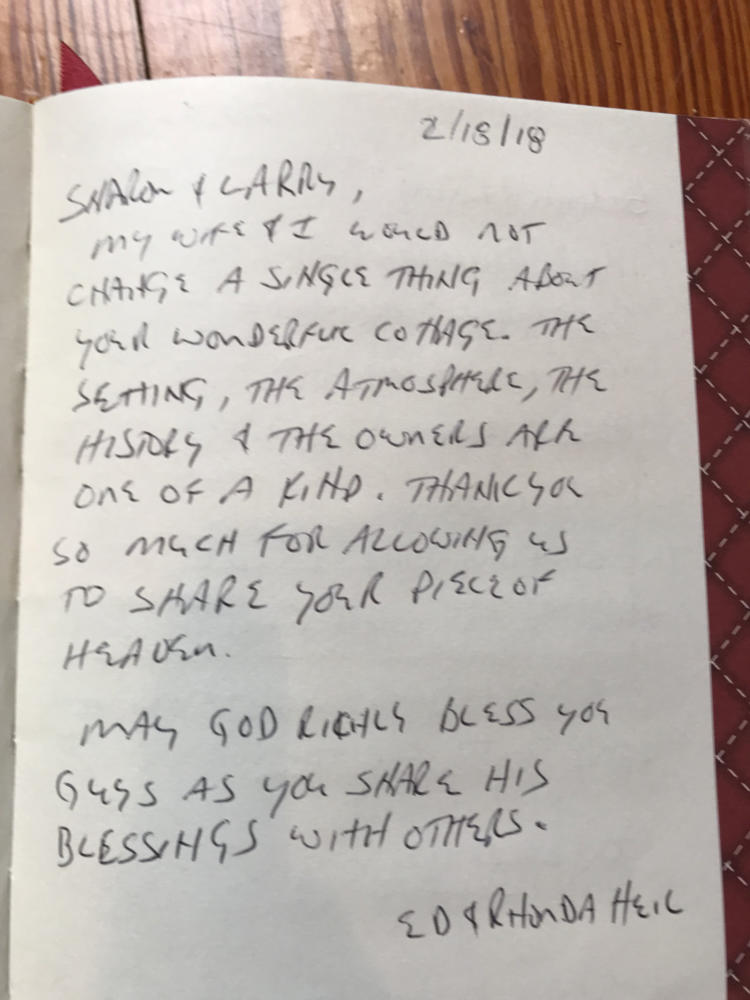 2/18/18
SHARON & LARRY,
MY WIFE & I WOULD NOT
CHANGE A SINGLE THING ABOUT
YOUR WONDERFUL COTTAGE. THE
SETTING, THE ATMOSPHERE, THE
HISTORY & THE OWNERS ARE
ONE OF A KIND. THANK YOU
SO MUCH FOR ALLOWING US
TO SHARE YOUR PIECE OF
HEAVEN.
MAY GOD RICHLY BLESS YOU
GUYS AS YOU SHARE HIS
BLESSINGS WITH OTHERS.
ED & RHONDA HEIL